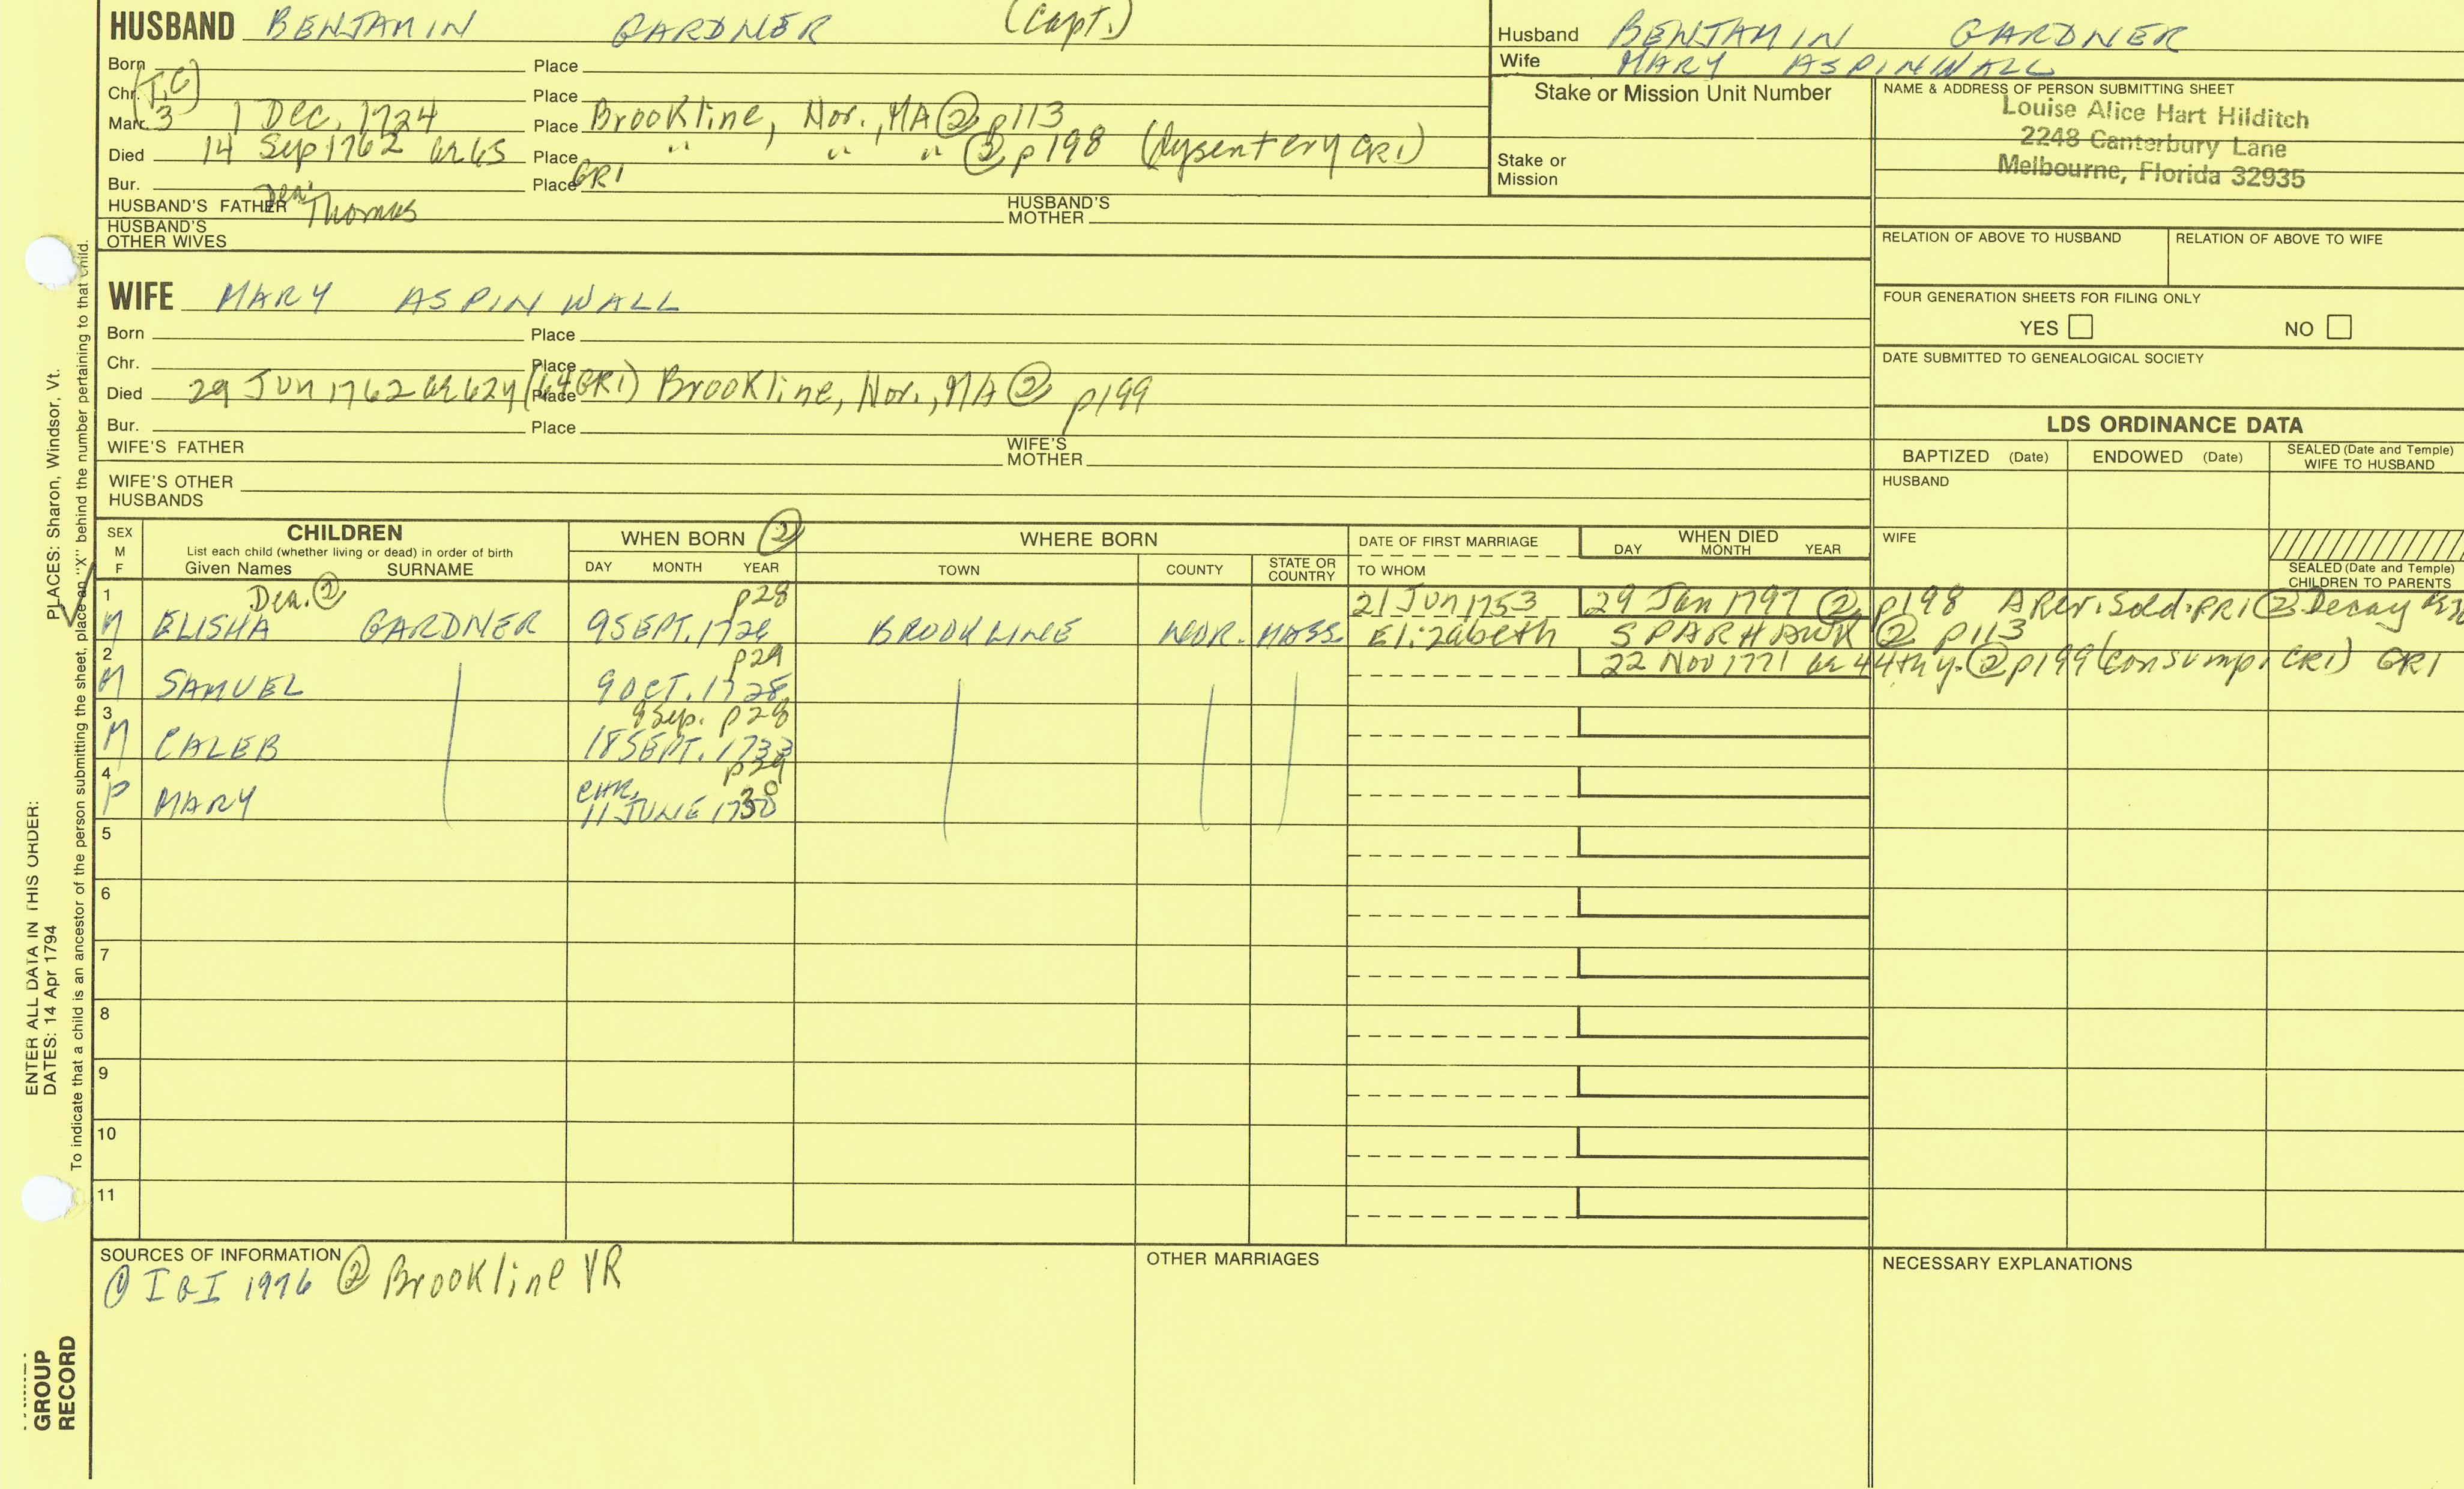 HUSBAND BENJAMIN GARDNER (Capt.)
Born Place
Chr. (T.C) Place
Marr. 3 1 Dec. 1724 Place Brookline, Nor., MA ② p113
Died 14 Sep 1762 ae 65 Place " " " ② p198 (dysentery CR1)
Bur. Place GR1
HUSBAND'S FATHER Dea. Thomas HUSBAND'S MOTHER
HUSBAND'S OTHER WIVES
Husband BENJAMIN GARDNER
Wife MARY ASPINWALL
Stake or Mission Unit Number
Stake or Mission
NAME & ADDRESS OF PERSON SUBMITTING SHEET
Louise Alice Hart Hilditch
2248 Canterbury Lane
Melbourne, Florida 32935
RELATION OF ABOVE TO HUSBAND RELATION OF ABOVE TO WIFE
FOUR GENERATION SHEETS FOR FILING ONLY
YES NO
DATE SUBMITTED TO GENEALOGICAL SOCIETY
WIFE MARY ASPINWALL
Born Place
Chr. Place
Died 29 Jun 1762 ae 62y (64 GR1) Place Brookline, Nor., MA ② p199
Bur. Place
WIFE'S FATHER WIFE'S MOTHER
WIFE'S OTHER HUSBANDS
LDS ORDINANCE DATA
BAPTIZED (Date) ENDOWED (Date) SEALED (Date and Temple) WIFE TO HUSBAND
HUSBAND
WIFE
SEALED (Date and Temple) CHILDREN TO PARENTS
SEX M F
CHILDREN
List each child (whether living or dead) in order of birth
Given Names SURNAME
WHEN BORN ②
DAY MONTH YEAR
WHERE BORN
TOWN COUNTY STATE OR COUNTRY
DATE OF FIRST MARRIAGE
TO WHOM
WHEN DIED
DAY MONTH YEAR
1 Dea. ② p28 21 Jun 1753 29 Jan 1797 ② p198 A Rev. Sold. PR1 ② Decay
M ELISHA GARDNER 9 SEPT. 1726 BROOKLINE NOR. MASS. Elizabeth SPARHAWK ② p113
2 p29 22 Nov 1771 ae 44th y. ② p199 (consump. CR1) GR1
M SAMUEL 9 OCT. 1728
3 9 Sep. p28
M CALEB 18 SEPT. 1733
4 p29
F MARY CHR. 11 JUNE 1730
5
6
7
8
9
10
11
SOURCES OF INFORMATION
① IGI 1976 ② Brookline VR
OTHER MARRIAGES
NECESSARY EXPLANATIONS
GROUP RECORD
ENTER ALL DATA IN THIS ORDER:
DATES: 14 Apr 1794
PLACES: Sharon, Windsor, Vt.
To indicate that a child is an ancestor of the person submitting the sheet, place an "X" behind the number pertaining to that child.